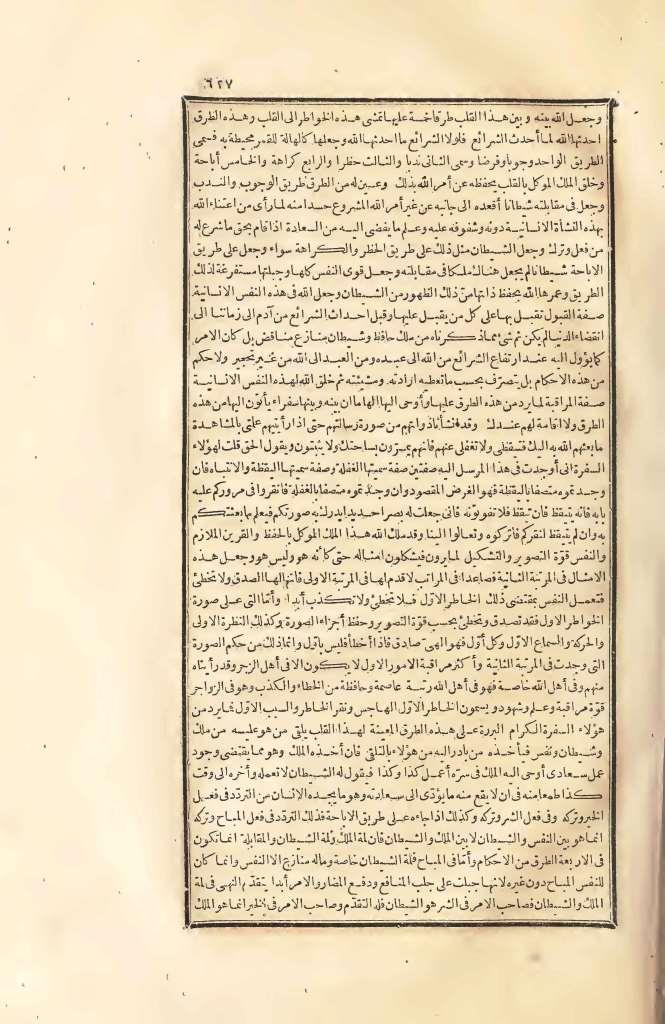 ٦٢٧
وجعل الله بينه وبين هذا القلب طرقا خمسة عليها تمشي هذه الخواطر الى القلب وهذه الطرق
احدثها الله لما أحدث الشرائع فلولا الشرائع ما احدثها الله وجعلها كالهالة للقمر محيطة به فسمى
الطريق الواحد وجوبا وفرضا وسمى الثانى ندبا والثالث حظرا والرابع كراهة والخامس أباحة
وخلق الملك الموكل بالقلب يحفظه عن أمر الله بذلك وعين له من الطرق طريق الوجوب والندب
وجعل فى مقابلته شيطانا أقعده الى جانبه عن غير أمر الله المشروع حسدا منه لما رأى من اعتناء الله
بهذه النشأة الانسانية دونه وشفوفه عليه وعلم ما يفضى اليه من السعادة اذا قام بحق ما شرع له
من فعل وترك وجعل الشيطان مثل ذلك على طريق الحظر والكراهة سواء وجعل على طريق
الاباحة شيطانا لم يجعل هناك ملكا فى مقابلته وجعل قوى النفس كلها وجبلتها مستفرغة لذلك
الطريق وعمرها الله بحفظ ذاتها من ذلك الظهور من الشيطان وجعل الله فى هذه النفس الانسانية
صفة القبول تقبل بها على كل من يقبل عليها وقبل احداث الشرائع من آدم الى زماننا الى
انقضاء الدنيا لم يكن ثم شئ مما ذكرناه من ملك حافظ وشيطان منازع مناقض بل كان الامر
كما يؤول اليه عند ارتفاع الشرائع من الله الى عبيده ومن العبد الى الله من غير تحجير ولا حكم
من هذه الاحكام بل يتصرف بحسب ما تعطيه ارادته ومشيئته ثم خلق الله لهذه النفس الانسانية
صفة المراقبة لما يرد من هذه الطرق عليها وأوحى اليها الهاما ان بينه وبينها سفراء يأتون اليها من هذه
الطرق ولا اقامة لهم عندك وقد أنشأنا ذواتهم من صورة رسالتهم حتى اذا رأيتهم علمتى بالمشاهدة
ما بعثهم الله به اليك فتيقظى ولا تغفلى عنهم فانهم يمرون بساحتك ولا يثبتون ويقول الحق قلت لهؤلاء
السفرة انى أوجدت فى هذا المرسل اليه صفتين صفة سميتها الغفلة وصفة سميتها اليقظة والانتباه فان
وجدتموه متصفا باليقظة فهو الغرض المقصود وان وجدتموه متصفا بالغفلة فانقروا فى مروركم عليه
بابه فانه يتيقظ فان تيقظ فلا تفوتوه فانى جعلت له بصرا حديدا يدرك به صورتكم فيعلم ما بعثتكم
به وان لم يتيقظ لنقركم فاتركوه وتعالوا الينا وقد ملك الله هذا الملك الموكل بالحفظ والقرين الملازم
والنفس قوة التصوير والتشكيل لما يرون فيشكلون امثاله حتى كأنه هو وليس هو وجعل هذه
الامثال فى المرتبة الثانية فصاعدا فى المراتب لا قدم لها فى المرتبة الاولى فانها لها الصدق ولا تخطئ
فتعمل النفس بمقتضى ذلك الخاطر الاول فلا تخطئ ولا تكذب أبدا وأما التى على صورة
الخواطر الاول فقد تصدق وتخطئ بحسب قوة التصوير وحفظ أجزاء الصورة وكذلك النظرة الاولى
والحركة والسماع الاول وكل أول فهو الهى صادق فاذا أخطأ فليس بأول وانما ذلك من حكم الصورة
التى وجدت فى المرتبة الثانية وأكثر مراقبة الامور الاول لا يكون الا فى أهل الزجر وقد رأيناه
منهم وفى أهل الله خاصة فهو فى أهل الله رتبة عاصمة وحافظة من الخطاء والكذب وهو فى الزواجر
قوة مراقبة وعلم وشهود ويسمون الخاطر الاول الهاجس ونقر الخاطر والسبب الاول مما يرد من
هؤلاء السفرة الكرام البررة على هذه الطرق المعينة لهذا القلب يلقى من هو عليه من ملك
وشيطان ونفس فيأخذه من بادر اليه من هؤلاء بالتلقى فان أخذه الملك وهو مما يقتضى وجود
عمل سعادى أوحى اليه الملك فى سره أعمل كذا وكذا فيقول له الشيطان لا تعمله وأخره الى وقت
كذا طمعا منه فى ان لا يقع منه ما يؤدى الى سعادته وهو ما يجده الانسان من التردد فى فعل
الخير وتركه وفى فعل الشر وتركه وكذلك اذا جاءه على طريق الاباحة فذلك التردد فى فعل المباح وتركه
انما هو بين النفس والشيطان لا بين الملك والشيطان فان لمة الملك ولمة الشيطان والمقابلة انما تكون
فى الاربعة الطرق من الاحكام وأما فى المباح فلمة الشيطان خاصة وماله منازع الا النفس وانما كان
للنفس المباح دون غيره لانها جبلت على جلب المنافع ودفع المضار والامر أبدا يتقدم النهى فى لمة
الملك والشيطان فصاحب الامر فى الشر هو الشيطان فله التقدم وصاحب الامر فى الخير انما هو الملك